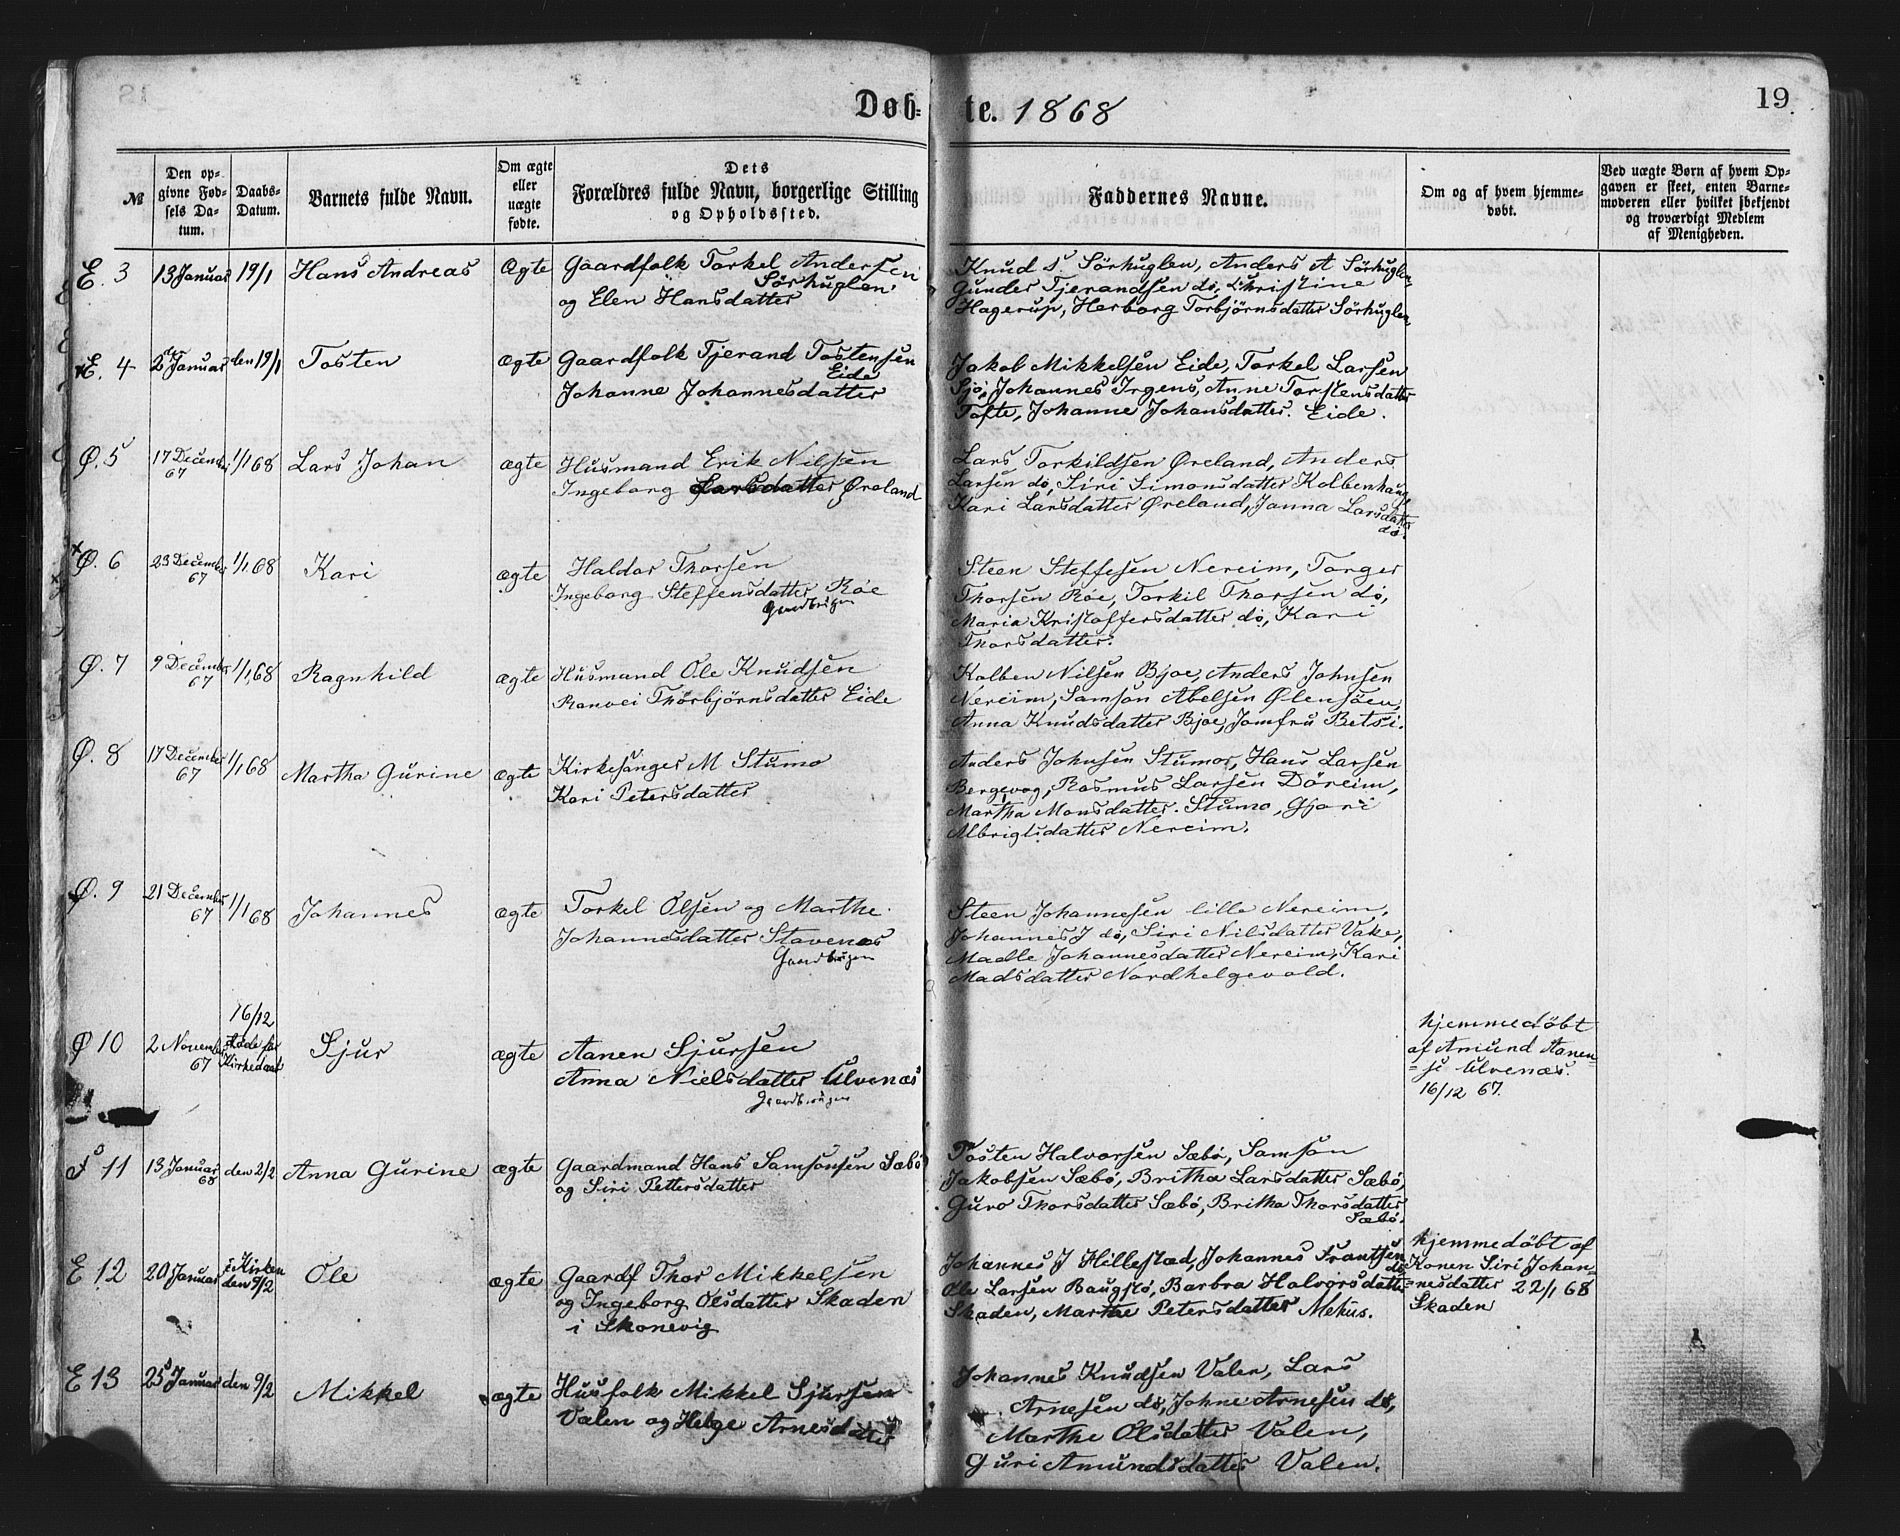 Døb=te. 1868
19
№
Den opgivne Fødsels Datum.
Daabs-Datum.
Barnets fulde Navn.
Om ægte eller uægte fødte.
Dets Forældres fulde Navn, borgerlige Stilling og Opholdssted.
Faddernes Navne.
Om og af hvem hjemmedøbt.
Ved uægte Børn af hvem Opgaven er skeet, enten Barnemoderen eller hvilket bekjendt og troværdigt Medlem af Menigheden.
E. 3 13 Januar 19/1 Hans Andreas Ægte Gaardfolk Torkel Andersen
Sörhuglen
og Elen Hansdatter
Knud S. Sörhuglen, Anders A Sörhuglen
Gunder Tjerandsen do, Christine
Hagerup, Herborg Torbjørnsdatter Sörhuglen
E. 4 2den Januar den 19/1 Tosten ægte Gaardfolk Tjerand Tostensen
Eide
Johanne Johannesdatter
Jakob Mikkelsen Eide, Torkel Larsen
Sjö, Johannes Irgens, Anne Torstensdatter
Tofte, Johanne Johansdatter. Eide.
Ø. 5 17 December 67 1/1 68 Lars Johan ægte Husmand Erik Nilsen
Ingeborg Larsdatter Øreland
Lars Torkildsen Øreland, Anders
Larsen do, Siri Simonsdatter Kolbenhaug
Kari Larsdatter Øreland, Janna Larsdatter
do.
Ø. 6 23 December 67 1/1 68 Kari ægte Haldor Thorsen
Ingeborg Steffensdatter Røe
Gaardbrúgen
Steen Steffesen Nereim, Torger
Thorsen Røe, Torkil Thorsen do,
Maria Kristoffersdatter do, Kari
Thorsdatter.
Ø. 7 9 December 67 1/1 68 Ragnhild ægte Husmand Ole Knudsen
Ranvei Thorbjørnsdatter Eide
Kolben Nilsen Bjoe, Anders Johnsen
Nereim, Samson Abelsen Ølensöen,
Anna Knudsdatter Bjoe, Jomfru Betsi.
Ø. 8 17 December 67 1/1 68 Martha Gurine ægte Kirkesanger M Stumo
Kari Petersdatter
Anders Johnsen Stumo, Hans Larsen
Bergevog, Rasmus Larsen Döreim,
Martha Monsdatter. Stumo, Gjori
Albrigtsdatter Nereim.
Ø. 9 21 December 67 1/1 68 Johannes ægte Torkel Olsen og Marthe
Johannesdatter Stavenæs
Gaardbrúgen
Steen Johannesen lille Nereim,
Johannes J do, Siri Nilsdatter Vake,
Madle Johannesdatter Nereim, Kari
Madsdatter Nordhelgevold.
Ø 10 2 November 67 16/12 Sjur ægte Aanen Sjursen
Anna Nielsdatter Ulvenæs
Gaardbrúgen
hjemmedöbt
af Amund Aanen=
=se Ulvenæs.
16/12 67.
11 13 Januar 68 den 2/2 Anna Gurine ægte Gaardmand Hans Samsonsen Sæbö
og Siri Pettersdatter
Tosten Halvorsen Sæbö, Samson
Jakobsen Sæbö, Britha Larsdatter Sæbö,
Guro Thorsdatter Sæbö, Britha Thorsdatter
Sæbö.
E 12 20 Januar i Kirken den 9/2 Ole ægte Gaardf Thor Mikkelsen
og Ingeborg Olsdatter Skaden
i Skonevig
Johannes J Hillestad, Johannes Frantsen
do
Ole Larsen Baugstö, Barbra Halvorsdatter
Skaden, Marthe Petersdatter Mehus.
hjemmedöbt af
Konen Siri Johan=
=nesdatter 22/1 68
Skaden
E 13 25 Januar den 9/2 Mikkel ægte Husfolk Mikkel Sjursen
Valen og Helge Arnesdatter
Johannes Knudsen Valen, Lars
Arnesen do, Johne Arnesen do,
Marthe Olsdatter Valen,
Guri Amundsdatter Valen.